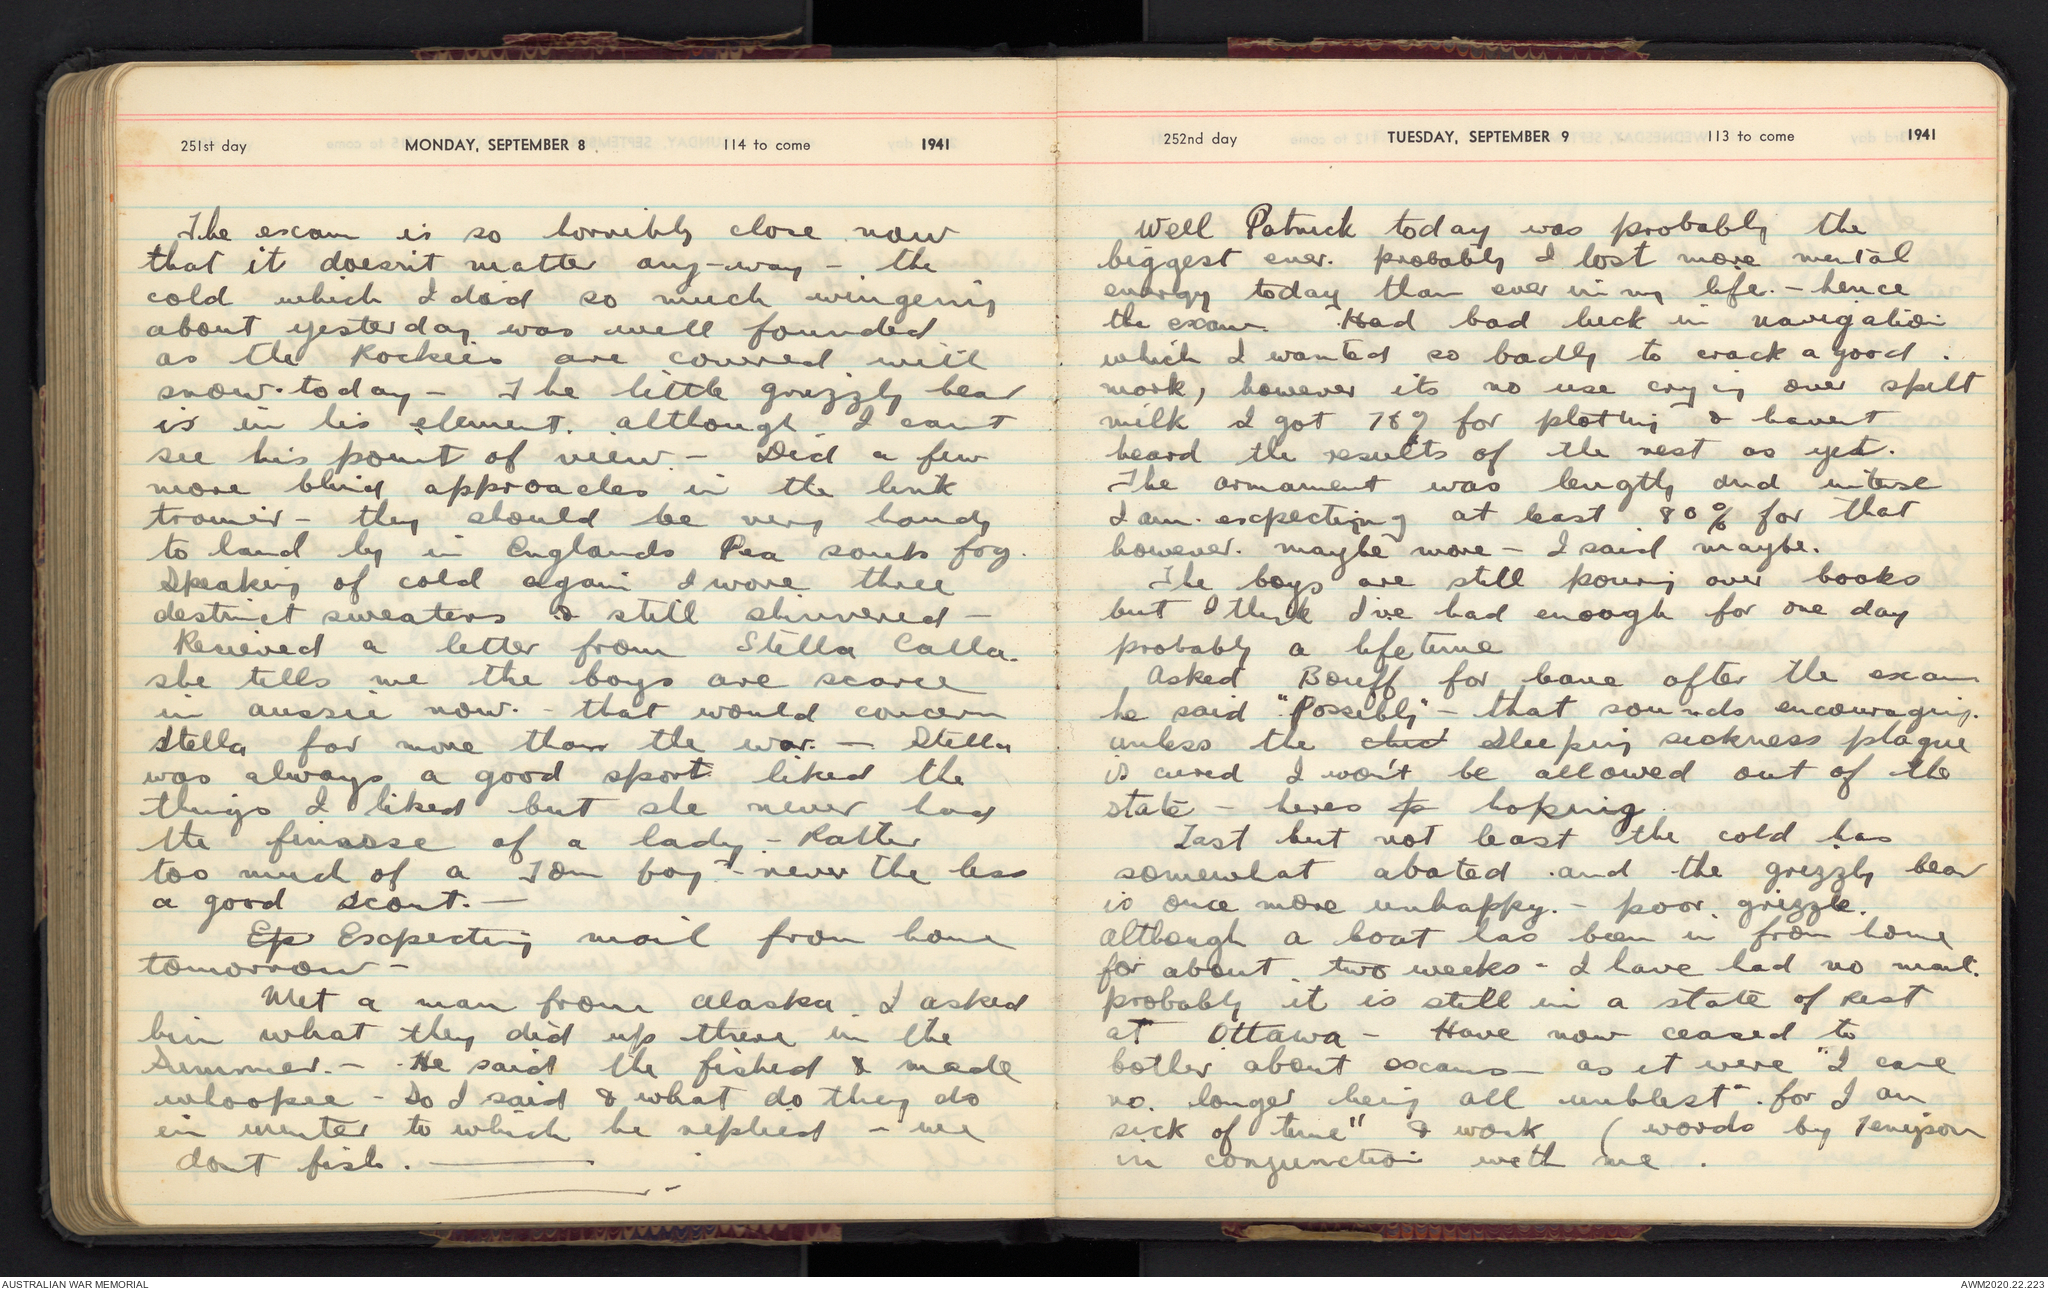 251st day MONDAY, SEPTEMBER 8 114 to come 1941
The exam is so horribly close now
that it doesn't matter any-way - the
cold which I did so much wingeing
about yesterday was well founded
as the Rockies are covered with
snow today - The little grizzly bear
is in his element. although I cant
see his point of view - Did a few
more blind approaches in the link
trainer - they should be very handy
to land by in Englands Pea soup fog.
Speaking of cold again I wore three
destrict sweaters & still shivered -
Recieved a letter from Stella Calla.
she tells me the boys are scarce
in aussie now. - that would concern
Stella far more than the war. - Stella
was always a good sport liked the
things I liked but she never had
the finesse of a lady - Rather
too much of a Tom boy - never the less
a good scout. -
Ep Expecting mail from home
tomorrow -
Met a man from Alaska I asked
him what they did up there in the
Summer. - He said the fished & made
whoopee - So I said & what do they do
in winter to which he replied - we
dont fish.
252nd day TUESDAY, SEPTEMBER 9 113 to come 1941
Well Patrick today was probably the
biggest ever. probably I lost more mental
energy today than ever in my life. - hence
the exam. Had bad luck in navigation
which I wanted so badly to crack a good
mark, however its no use crying over spilt
milk I got 78% for plotting & havent
heard the results of the rest as yet.
The armament was lengthy and intense
I am expecting at least 80% for that
however. maybe more - I said maybe.
The boys are still pouring over books
but I think I've had enough for one day
probably a lifetime
Asked Bouff for leave after the exam
he said "Possibly" - that sounds encouraging.
unless the Sleeping sickness plague
is cured I won't be allowed out of the
state - heres hoping
Last but not least the cold has
somewhat abated and the grizzly bear
is once more unhappy. - poor grizzle.
Although a boat has been in from home
for about two weeks - I have had no mail.
probably it is still in a state of rest
at Ottawa - Have now ceased to
bother about exams - as it were "I care
no longer being all unblest" for I am
sick of time" & work (words by Tenyson
in conjunction with me.
AUSTRALIAN WAR MEMORIAL AWM2020.22.223